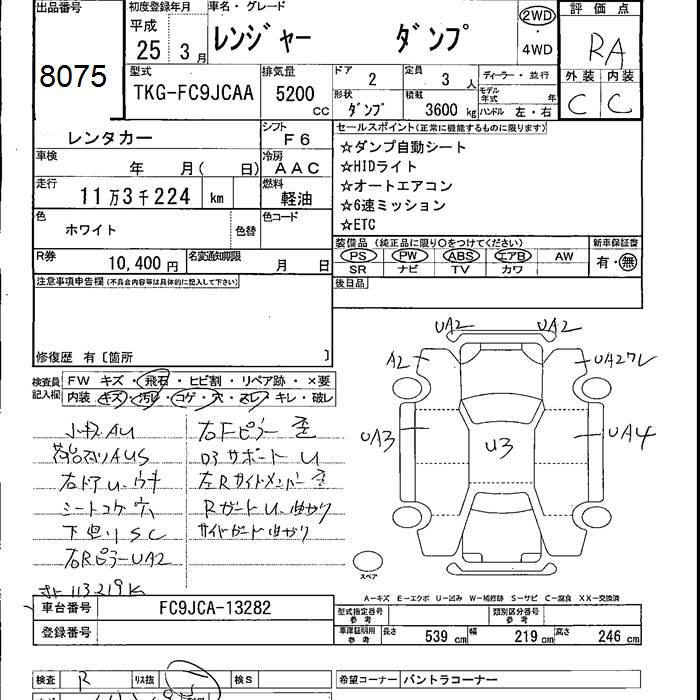 出品番号 初度登録年月 車名・グレード 2WD 評価点
平成
25 3月 レンジャー ダンプ ・
4WD RA
8075 型式 排気量 ドア 2 定員 3人 ディーラー・並行 外装 内装
TKG-FC9JCAA 5200cc 形状 ダンプ 積載 3600kg モデル年式 年 C C
ハンドル 左・右
レンタカー シフト F6 セールスポイント(正常に機能するものに限ります)
☆ダンプ自動シート
車検 年 月( 日) 冷房 AAC ☆HIDライト
走行 11万3千224 km 燃料 軽油 ☆オートエアコン
☆6速ミッション
色 ホワイト 色替 色コード ☆ETC
装備品 (純正品に限り○をつけてください) 新車保証書
R券 10,400円 名変通知期限 月 日 PS PW ABS エアB AW 有・無
SR ナビ TV カワ
注意事項申告欄(不具合内容等は具体的に記入して下さい) 後日品
修復歴 有〔箇所 〕
UA2 UA2
A2 UA2ワレ
検査員記入欄 FW キズ・飛石・ヒビ割・リペア跡・×要
内装 キズ・汚レ・コゲ・穴・スレ・キレ・破レ
UA3 U3 UA4
小キズAU 右Fピラー歪
サポートU
右ドアU 左Rサイドメンバー歪
シートコゲ穴 RガードU 曲がり
下回りSC サイドガード曲がり
右RピラーUA2
113219K
スペア
A-キズ E-エクボ U-凹み W-補修跡 S-サビ C-腐食 XX-交換済
車台番号 FC9JCA-13282 型式指定番号 参考 類別区分番号 参考
登録番号 車庫証明用 参考 長さ 539cm 幅 219cm 高さ 246cm
検査 R リス抜 検S 希望コーナー バントラコーナー